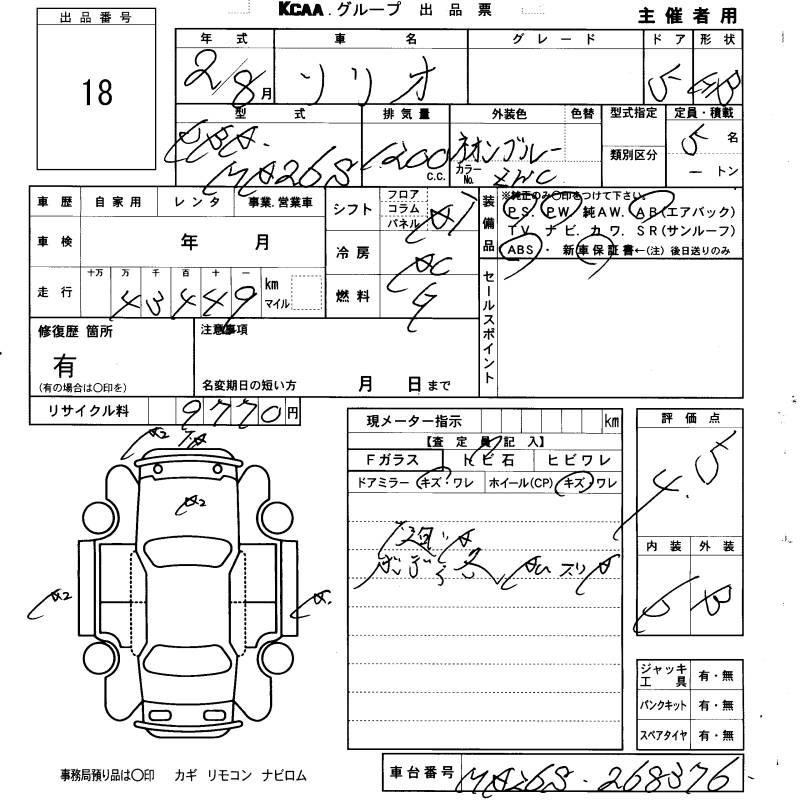 KCAA.グループ 出品票
主催者用
出品番号
18
年式 車名 グレード ドア 形状
2/8月 ソリオ 5 HB
型式 排気量 外装色 色替 型式指定 定員・積載
DBA- MA26S 1200 C.C. ネオンブルー カラーNo. ZWC 類別区分 5名 ートン
車歴 自家用 レンタ 事業.営業車
シフト フロア コラム パネル AT
装備品 ※純正のみ〇印をつけて下さい。
PS. PW. 純AW. AB(エアバック)
TV. ナビ. カワ. SR(サンルーフ)
ABS ・ 新車保証書←(注) 後日送りのみ
車検 年 月
冷房 AC
走行 十万 万 千 百 十 一 km マイル
43449
燃料 G
セールスポイント
修復歴 箇所
有
(有の場合は〇印を)
注意事項
名変期日の短い方 月 日まで
リサイクル料 9770円
現メーター指示 km
【査定員記入】
Fガラス トビ石 ヒビワレ
ドアミラー キズ・ワレ ホイール(CP) キズ・ワレ
評価点
4.5
内装 外装
B
A2
A2
A2
A
スリA
ジャッキ工具 有・無
パンクキット 有・無
スペアタイヤ 有・無
事務局預り品は〇印 カギ リモコン ナビロム
車台番号 MA26S-268376